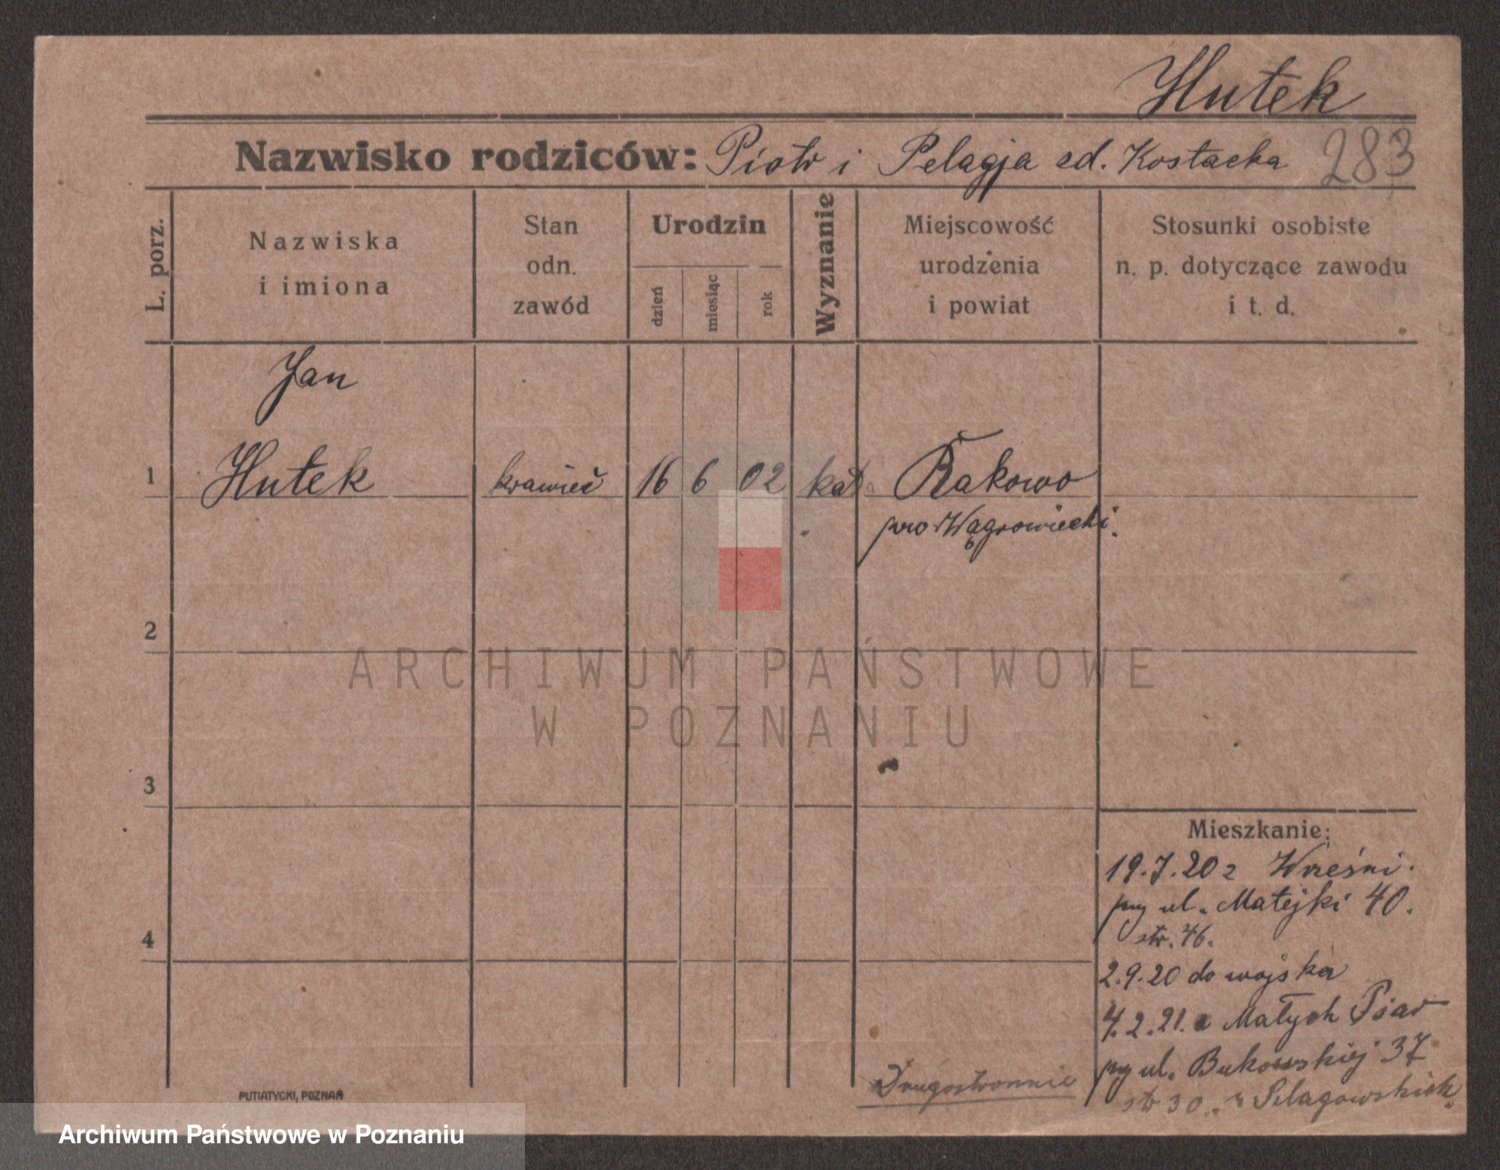 Hutek
Nazwisko rodziców: Piotr i Pelagja zd. Kostacka 283
L. porz.
Nazwiska
i imiona
Stan
odn.
zawód
Urodzin
dzień
miesiąc
rok
Wyznanie
Miejscowość
urodzenia
i powiat
Stosunki osobiste
n. p. dotyczące zawodu
i t. d.
Jan
1 Hutek krawiec 16 6 02 kat. Rakowo
pow Wągrowiecki.
2
ARCHIWUM PAŃSTWOWE
W POZNANIU
3
Mieszkanie:
19.7.20 z Wrześni.
przy ul. Matejki 40.
str. 46.
4
2.9.20 do wojska
4.2.21. z Małych Psar
przy ul. Bukowskiej 37
str 30. u
Drugostronnie
PUTIATYCKI, POZNAŃ
Archiwum Państwowe w Poznaniu